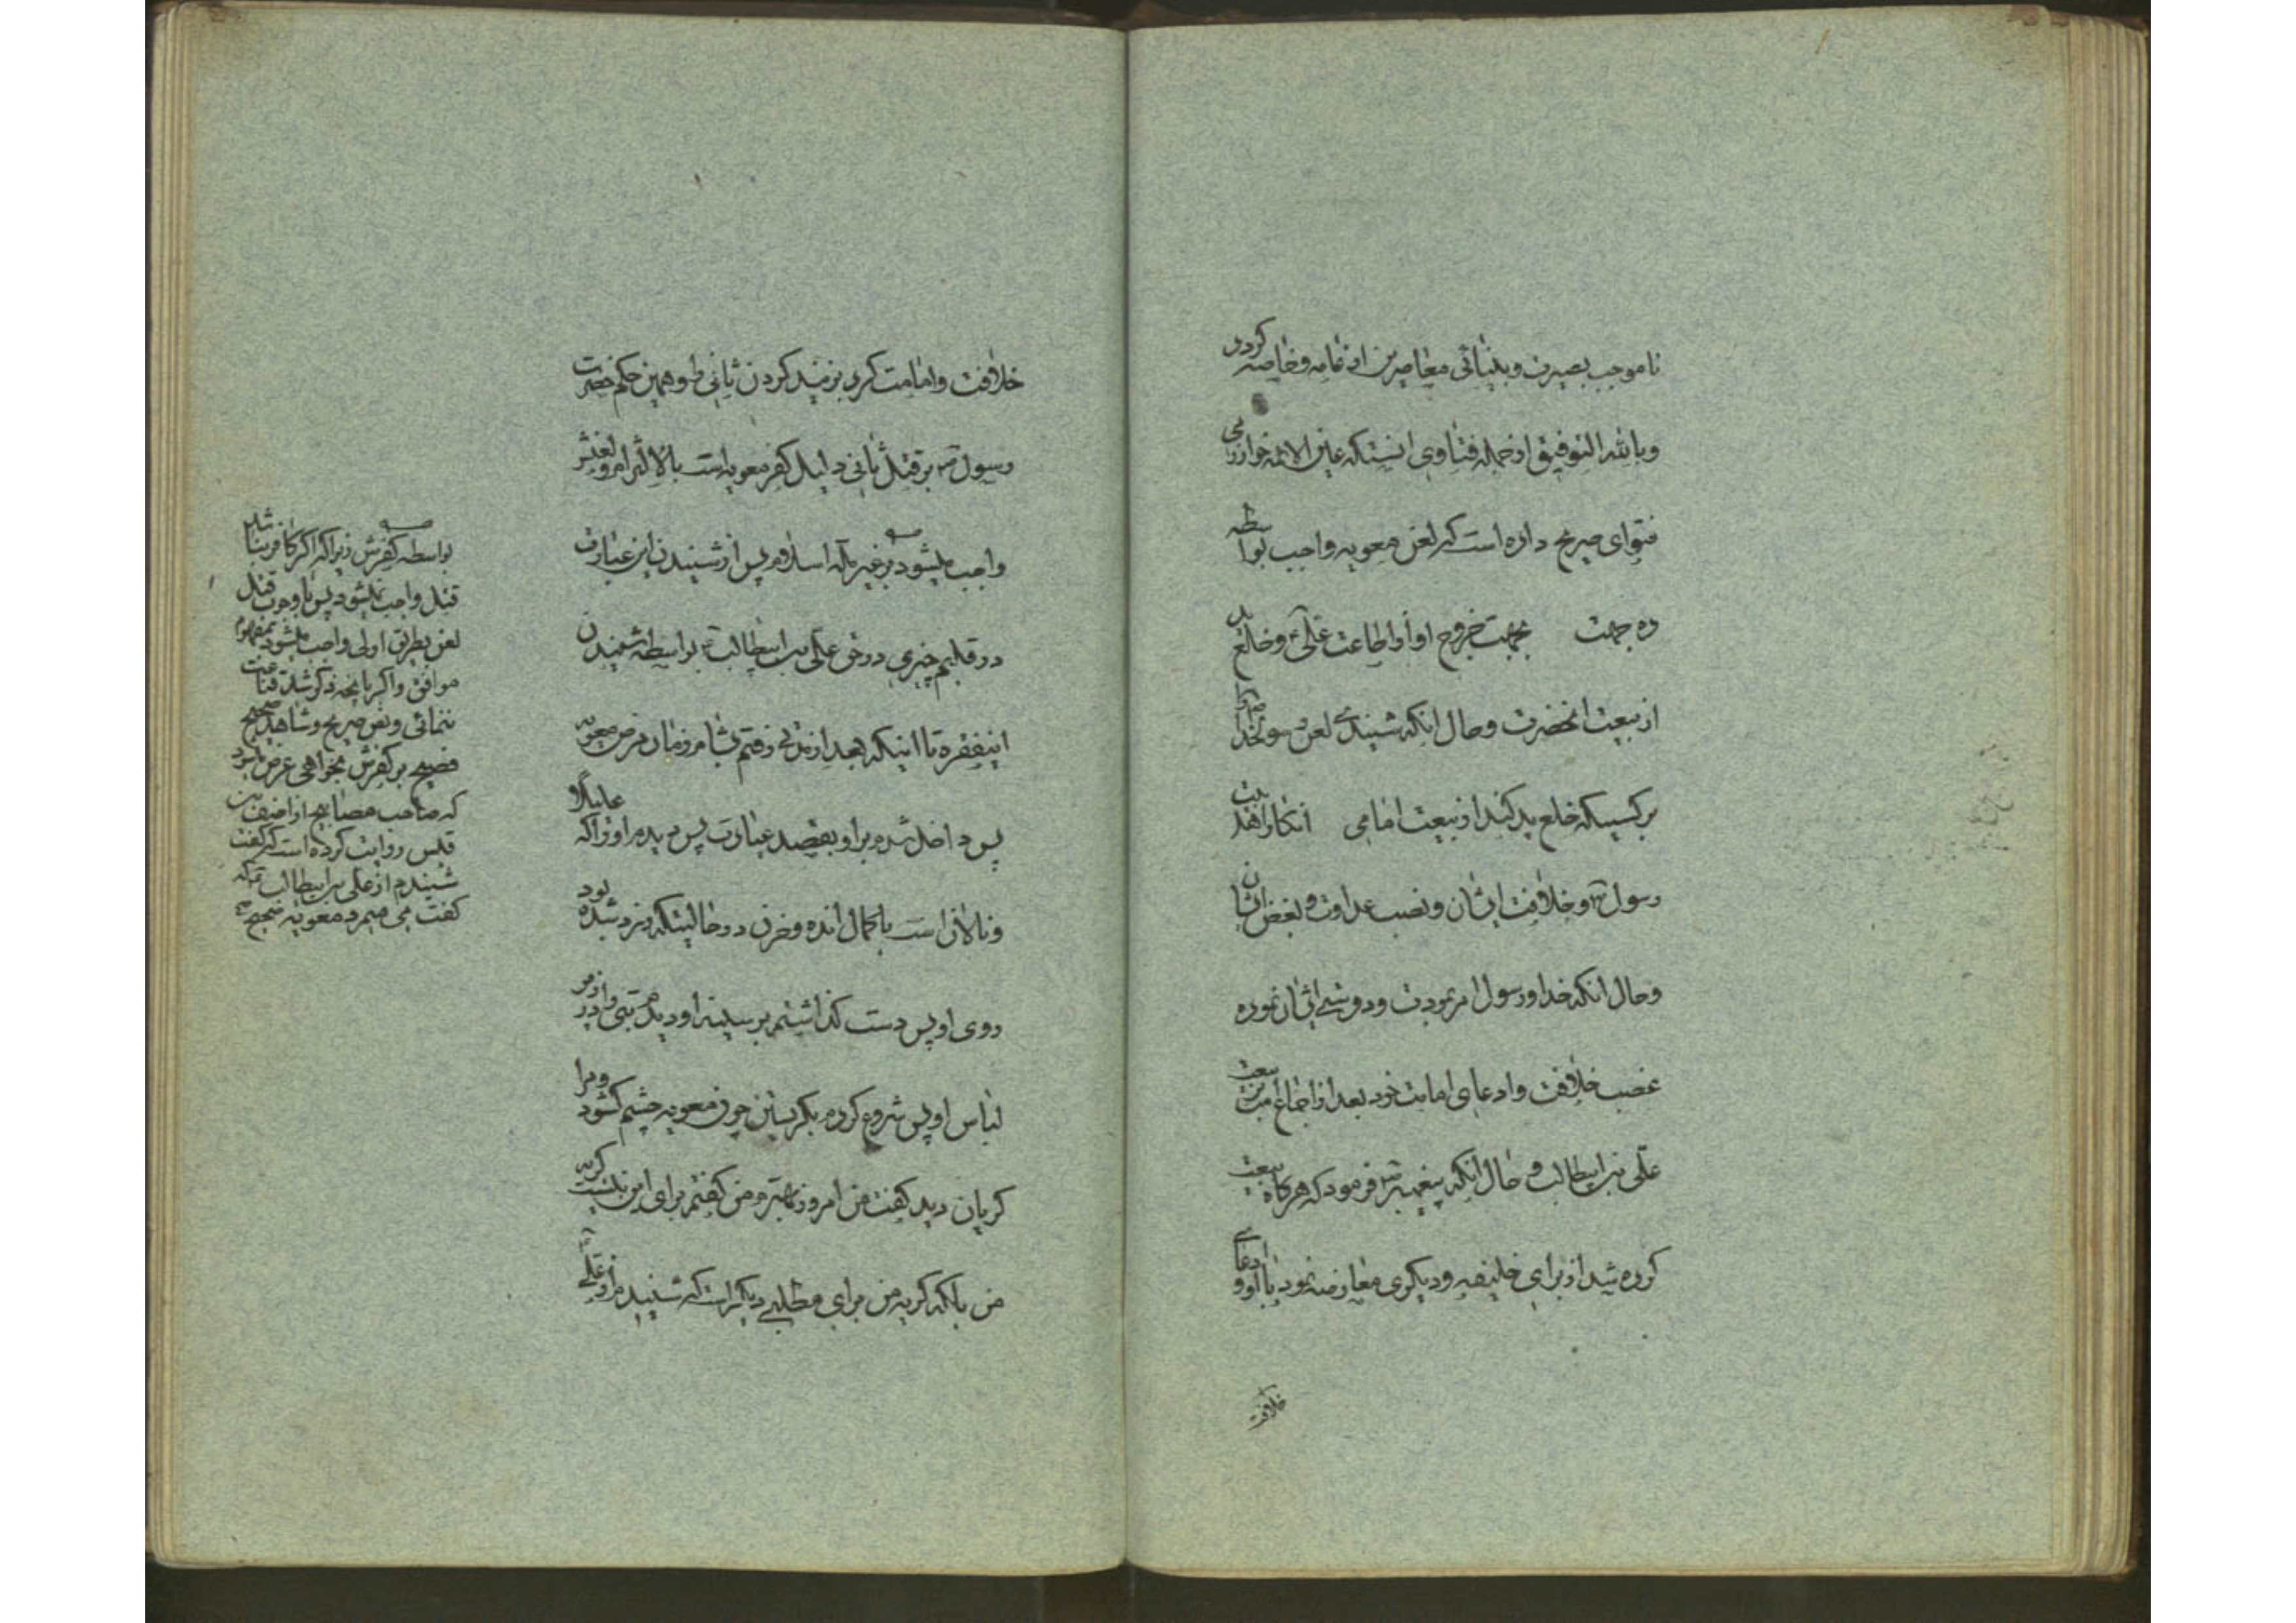 تا موجب بصیرت و بینائی معاصرین از عامه و خاصه کردد
و بالله التوفیق از جمله فتاوی انستکه عین الائمه خوارزمی
فتوای صریح داده است که لعن معویه واجب بواسطه
ده جهت بجهت خروج او از اطاعت علی و خلع ید
از بیعت انحضرت و حال انکه شنیدی لعن رسولخدا
بر کسیکه خلع ید کند از بیعت امامی انکار اهلبیت
رسول و خلافت ایشان و نصب عداوت و بغض ایشان
و حال انکه خدا و رسول امر بمودت و دوستی ایشان نموده
غصب خلافت و ادعای امامت خود بعد از اجماع بیعت
علی بن ابیطالب و حال انکه پیغمبر فرمود که هرکاه بیعت
کرده شد از برای خلیفه و دیکری معارضه نمود با او و ادعای
خلافت
خلافت و امامت کرد بزنید کردن ثانی را و همین حکم حضرت
رسول بر قتل ثانی دلیل کفر معویه است بالاتر امر و لعنش
واجب میشود بر غیر ملة اسلام پس از شنیدن این عبارت
در قلبم چیزی در حق علی بن ابیطالب بواسطه شنیدن
اینفقره تا اینکه بعد از مدتی رفتم بشام و زمان مرض معویه
پس داخل شدم بر او بقصد عیادت پس دیدم او را که
و نالان است با کمال انده و حزن در حالیتکه زرد شده بود
روی او پس دست کذاشتم بر سینه او دیدم بتی واز مو در
لباس او پس شروع کردم بکریستن چون معویه چشم کشود و مرا
کریان دید کفت من امروز بهترم من کفتم برای این نیست کریه
من بلکه کریه من برای مطلبی دیکر است که شنیدم از علی
بواسطه کفرش زیرا که اگر کافر نباشد
قتل واجب نمیشود پس با وجوب قتل
لعن بطریق اولی واجب میشود بمفهوم
موافق و اکر بانچه ذکر شد قناعت
ننمائی و نص صریح و شاهد صحیح
فصیح بر کفرش بخواهی عرض میشود
که صاحب مصابیح از احنف بن
قیس روایت کرده است که کفت
شنیدم از علی بن ابیطالب که
کفت می میرد معویه